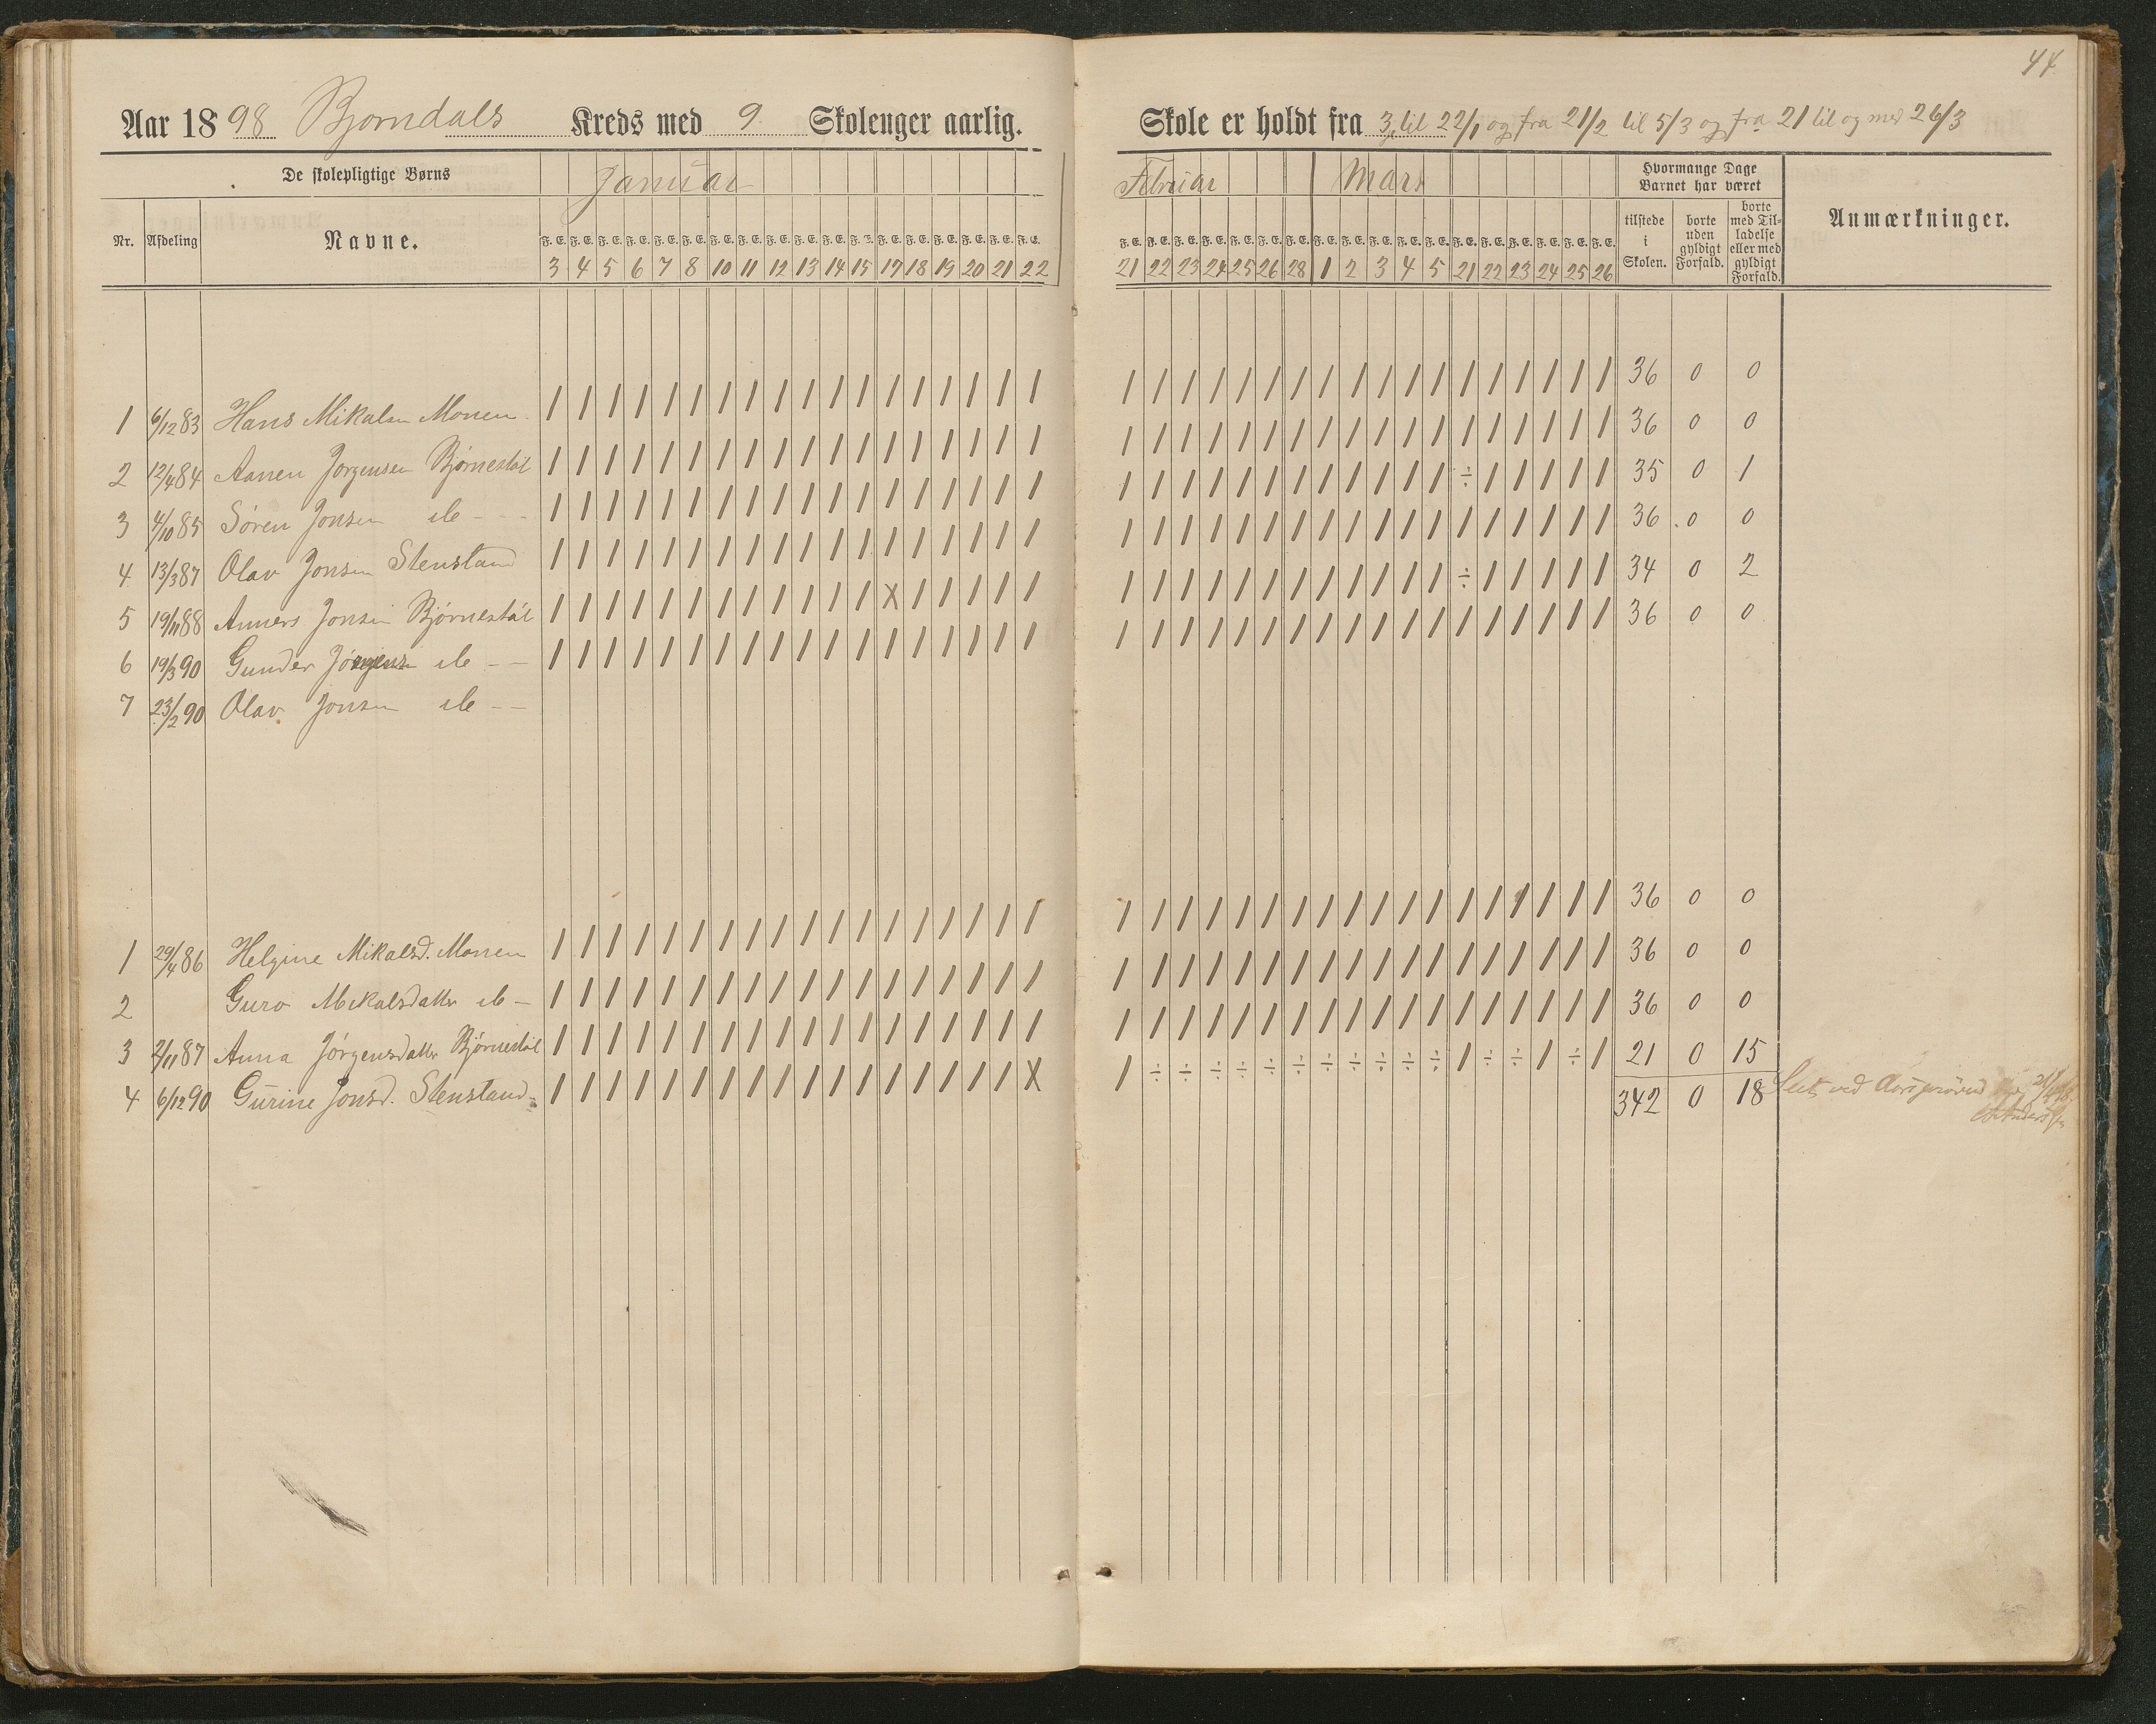 44
Aar 1898 Bjorndals Kreds med 9. Skoleuger aarlig.
Skole er holdt fra 3 til 22/1 og fra 21/2 til 5/3 og fra 21 til og med 26/3
De skolepligtige Børns
Januar
Nr. Afdeling Navne.
F. E. F. E. F. E. F. E. F. E. F. E. F. E. F. E. F. E. F. E. F. E. F. E. F. E. F. E. F. E. F. E. F. E. F. E.
3 4 5 6 7 8 10 11 12 13 14 15 17 18 19 20 21 22
Februar Mars
Hvormange Dage
Barnet har været
Anmærkninger.
F. E. F. E. F. E. F. E. F. E. F. E. F. E. F. E. F. E. F. E. F. E. F. E. F. E. F. E. F. E. F. E. F. E. F. E.
21 22 23 24 25 26 28 1 2 3 4 5 21 22 23 24 25 26
tilstede
i
Skolen.
borte
uden
gyldigt
Forfald.
borte
med Til-
ladelse
eller med
gyldigt
Forfald.
1 6/12 83 Hans Mikalsn Monen / / / / / / / / / / / / / / / / / / / / / / / / / / / / / / / / / / / / 36 0 0
2 12/4 84 Aanen Jorgensen Bjørnestøl / / / / / / / / / / / / / / / / / / / / / / / / / / / / / / / / / / / / 36 0 0
3 4/10 85 Søren Jonsen do - - / / / / / / / / / / / / / / / / / / / / / / / / / / / / / / ÷ / / / / / 35 0 1
4 13/3 87 Olav Jonsen Stenstand / / / / / / / / / / / / / / / / / / / / / / / / / / / / / / / / / / / / 36 0 0
5 19/11 88 Anners Jonsen Bjørnestøl / / / / / / / / / / / / X / / / / / / / / / / / / / / / / / ÷ / / / / / 34 0 2
6 19/3 90 Gunder Jörgensn do - - / / / / / / / / / / / / / / / / / / / / / / / / / / / / / / / / / / / / 36 0 0
7 23/2 90 Olav Jonsen do - -
1 29/4 86 Helgine Mikalsd. Monen / / / / / / / / / / / / / / / / / / / / / / / / / / / / / / / / / / / / 36 0 0
2 Guro Mikalsdatter do - / / / / / / / / / / / / / / / / / / / / / / / / / / / / / / / / / / / / 36 0 0
3 2/11 87 Anna Jørgensdatter Bjørnestøl / / / / / / / / / / / / / / / / / / / / / / / / / / / / / / / / / / / / 36 0 0
4 6/12 90 Gurine Jonsd. Stenstand / / / / / / / / / / / / / / / / / X / ÷ ÷ ÷ ÷ ÷ ÷ ÷ ÷ ÷ ÷ ÷ / ÷ ÷ / ÷ / 21 0 15
342 0 18 Seet ved Aarsprøven